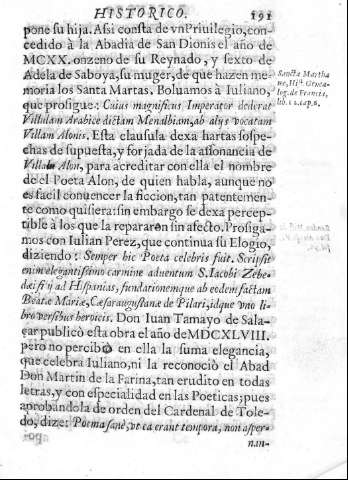 HISTORICO. 191
pone su hija. Assi consta de vn Priuilegio, con-
cedido à la Abadia de San Dionis el año de
MCXX. onzeno de su Reynado, y sexto de
Adela de Saboya, su muger, de que hazen me-
moria los Santa Martas. Boluamos à Iuliano,
que prosigue: Cuius magnificus Imperator dederat
Villulam Arabice dictam Menalbiam, ab alys vocatam
Villam Alonis. Esta clausula dexa hartas sospe-
chas de supuesta, y forjada de la assonancia de
Villalu Alon, para acreditar con ella el nombre
de el Poeta Alon, de quien habla, aunque no
es facil conuencer la ficcion, tan patentemen-
te como quisiera: sin embargo se dexa percep-
tible à los que la repararon sin afecto. Prosiga-
mos con Iulian Perez, que continua su Elogio,
diziendo: Semper hic Poeta celebris fuit. Scripsit
enim elegantissimo carmine aduentum S. Iacobi Zebe-
dæi fij ad Hispanias, fundationemque ab eodem factam
Beatæ Mariæ, Cæsaraugustana de Pilari, idque vno li-
bro versibus heroicis. Don Iuan Tamayo de Sala-
çar publicò esta obra el año de MDCXLVIII.
pero no percibiò en ella la suma elegancia,
que celebra Iuliano, ni la reconociò el Abad
Don Martin de la Farina, tan erudito en todas
letras, y con especialidad en las Poeticas; pues
aprobandola de orden del Cardenal de Tole-
do, dize: Poema sanè, vt ea erant tempora, non asper-
nan-
Sancta Martha
ne, Hist. Genea-
log. de Francia,
lib. 12. cap. 2.